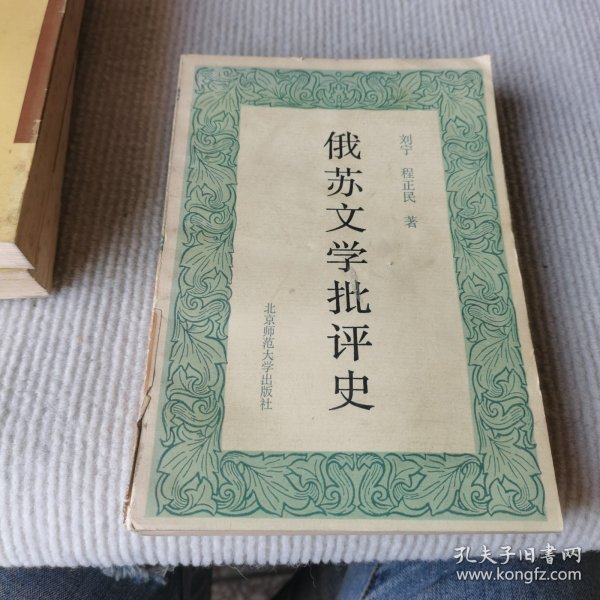 刘宁 程正民 著
俄苏文学批评史
北京师范大学出版社
孔夫子旧书网
www.kongfz.com